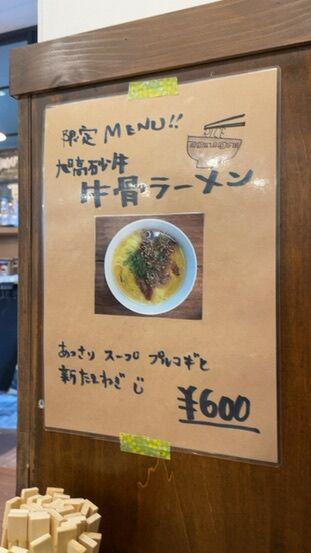 限定 MENU!!
旭高砂牛
牛骨ラーメン
あっさり スープ プルコギと
新たまねぎ じ
¥600